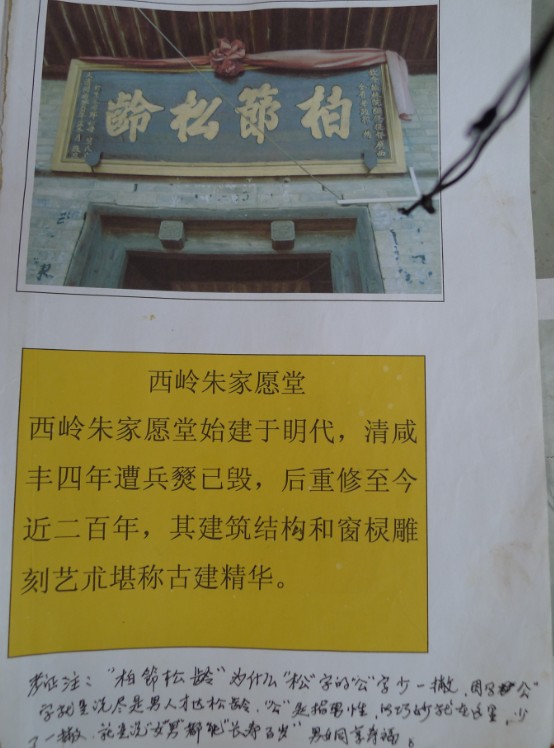 柏節松齡
西岭朱家愿堂
西岭朱家愿堂始建于明代，清咸
丰四年遭兵燹已毁，后重修至今
近二百年，其建筑结构和窗棂雕
刻艺术堪称古建精华。
考证注：“柏節松龄”为什么“松”字的“公”字少一撇，因“公”
字就是说尽是男人才松龄，“公”是指男性，巧妙就在这里，少
了一撇，就是说“女”“男”都能“长寿百岁”男女同享寿福。